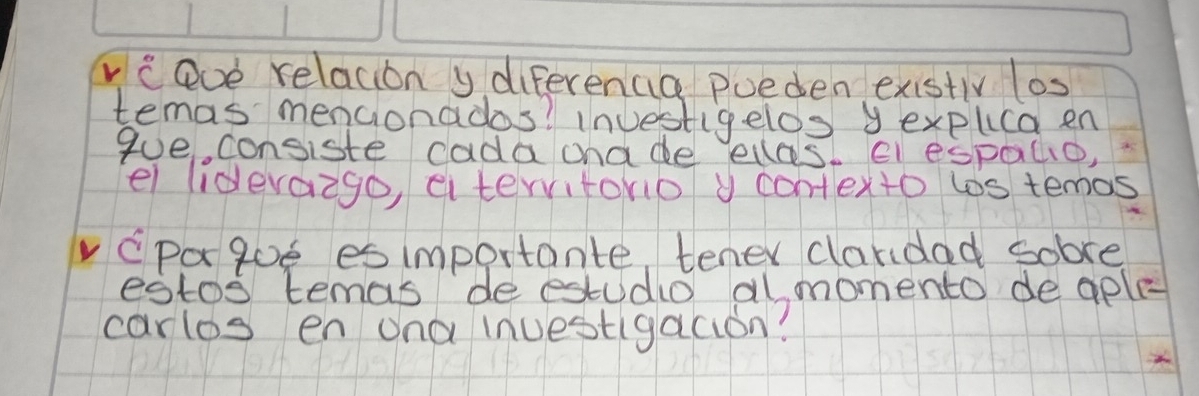 ¿Qué relación y diferencia pueden existir los
temas mencionados? investigelos y explica en
que consiste cada una de ellas. el espacio,
el liderazgo, el territorio y contexto los temas
¿Por qué es importante tener claridad sobre
estos temas de estudio al momento de apli-
carlos en una investigación?